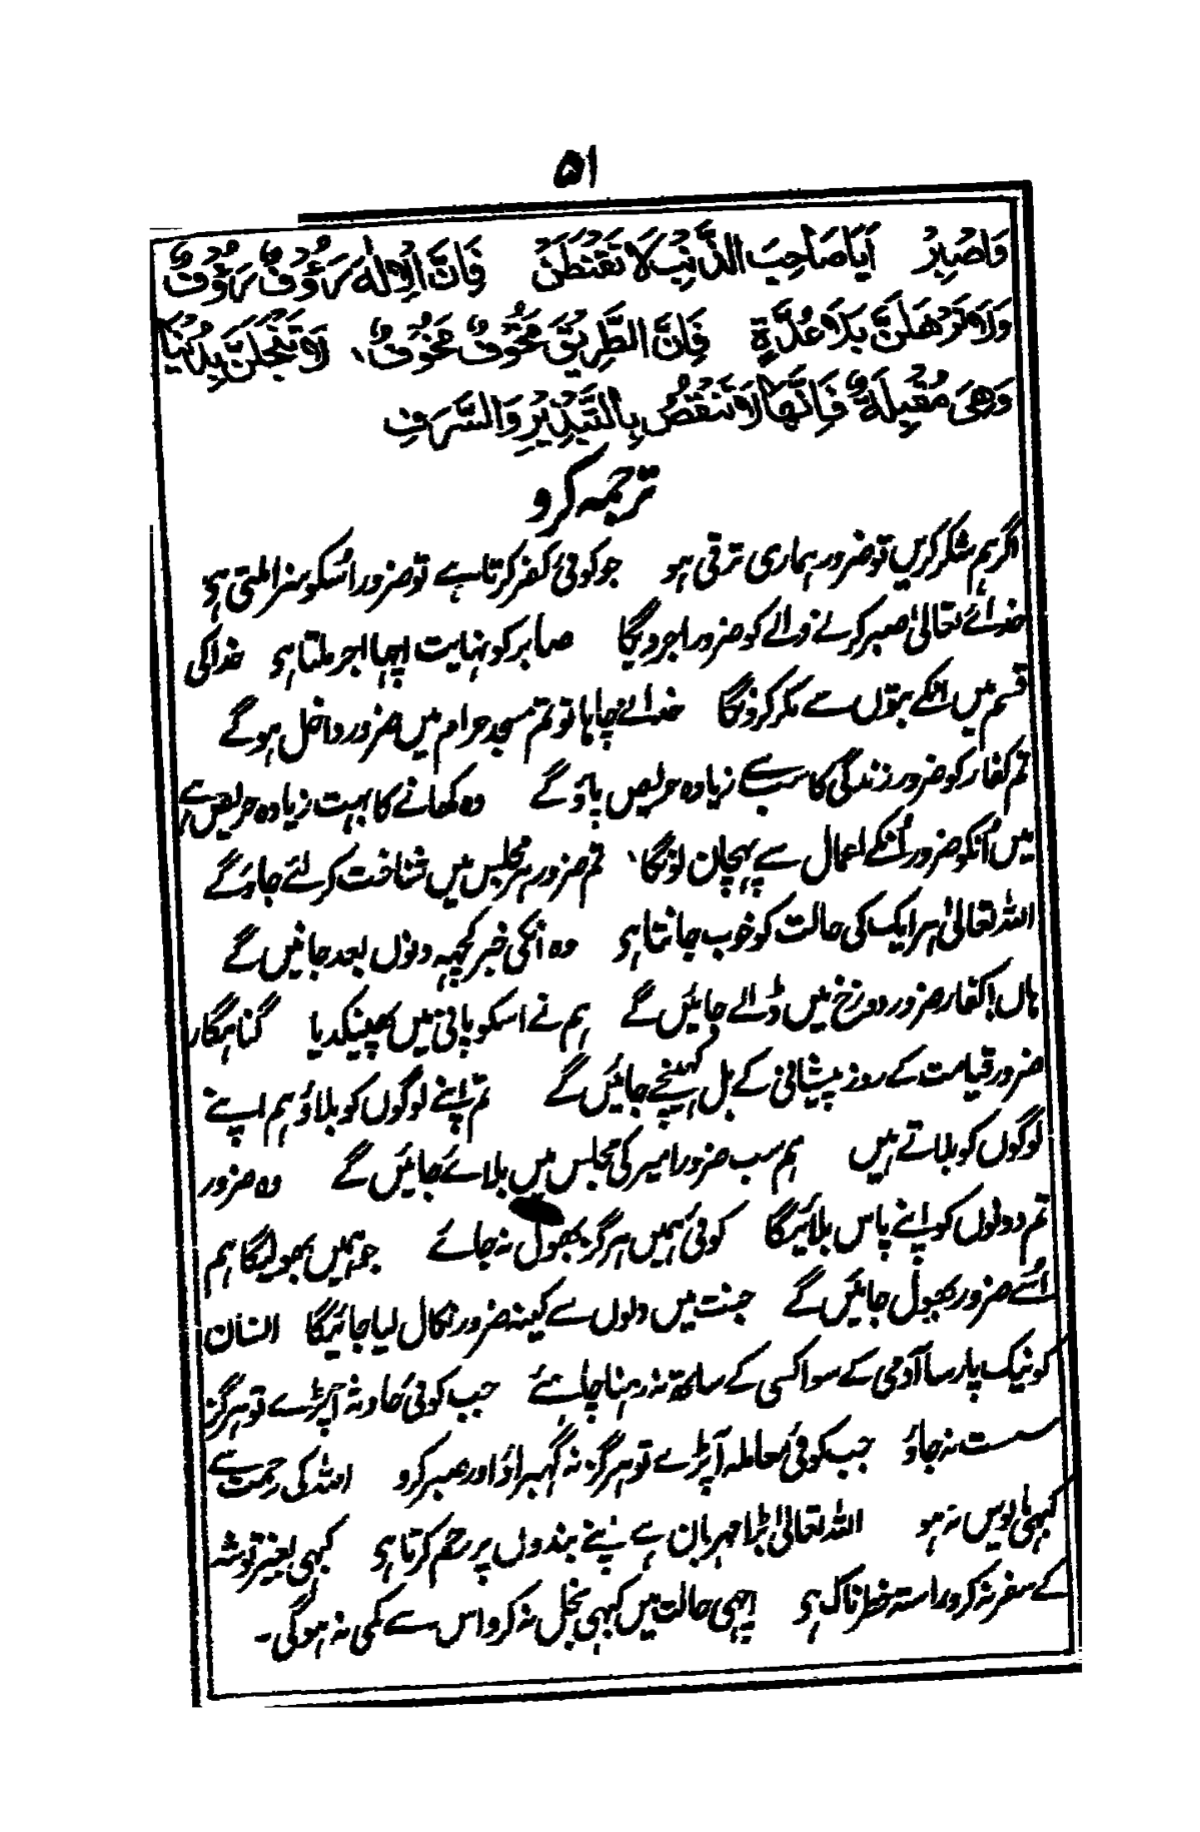 ۵۱
وَاصْبِرْ أَيَا صَاحِبَ الذَّنْبِ لَا تَقْنَطَنْ فَإِنَّ الْإِلٰهَ رَءُوْفٌ رَءُوْفٌ
وَلَا تَرْحَلَنَّ بِلَا عُدَّةٍ فَإِنَّ الطَّرِيْقَ مَخُوْفٌ مَخُوْفٌ، لَا تَبْخَلَنَّ بِدُنْيَا
وَهِيَ مُقْبِلَةٌ فَإِنَّهَا لَا تَنْقُصُ بِالتَّبْذِيْرِ وَالسَّرَفِ
ترجمہ کرو
اگر ہم شکر کریں تو ضرور ہماری ترقی ہو جو کوئی کفر کرتا ہے تو ضرور اُسکو سزا ملتی ہی
خدائے تعالیٰ صبر کرنے والے کو ضرور اجر دیگا صابر کو نہایت اچہا اجر ملتا ہی خدا کی
قسم میں انکے بتوں سے مکر کرونگا خدا نے چاہا تو تم مسجد حرام میں ضرور داخل ہوگے
تم کفار کو ضرور زندگی کا سب سے زیادہ حریص پاؤگے وہ کھانے کا بہت زیادہ حریص ہے
میں اُنکو ضرور اُنکے اعمال سے پہچان لونگا، تم ضرور ہر مجلس میں شناخت کر لئے جاؤگے
اللہ تعالیٰ ہر ایک کی حالت کو خوب جانتا ہی وہ انکی خبر کچہہ دنوں بعد جانیں گے
ہاں! کفار ضرور دوزخ میں ڈالے جائیں گے ہم نے اسکو پانی میں پھینکدیا گناہگار
ضرور قیامت کے روز پیشانی کے بل کھینچے جائیں گے تم اپنے لوگوں کو بلاؤ ہم اپنے
لوگوں کو بلاتے ہیں ہم سب ضرور امیر کی مجلس میں بلائے جائیں گے وہ ضرور
تم دونوں کو اپنے پاس بلائیگا کوئی ہمیں ہرگز بھول نہ جائے جو ہمیں بھولیگا ہم
اُسے ضرور بھول جائیں گے جنت میں دلوں سے کینہ ضرور نکال لیا جائیگا انسان
کو نیک پارسا آدمی کے سوا کسی کے ساتھ نہ رہنا چاہئے جب کوئی حادثہ آپڑے تو ہرگز
سست نہ جاؤ جب کوئی معاملہ آپڑے تو ہرگز نہ گھبراؤ اور صبر کرو اللہ کی رحمت سے
کبہی مایوس نہ ہو اللہ تعالیٰ بڑا مہربان ہے اپنے بندوں پر رحم کرتا ہی کبہی بغیر توشہ
کے سفر نہ کرو راستہ خطرناک ہی اچہی حالت میں کبہی بخل نہ کرو اس سے کمی نہ ہوگی۔